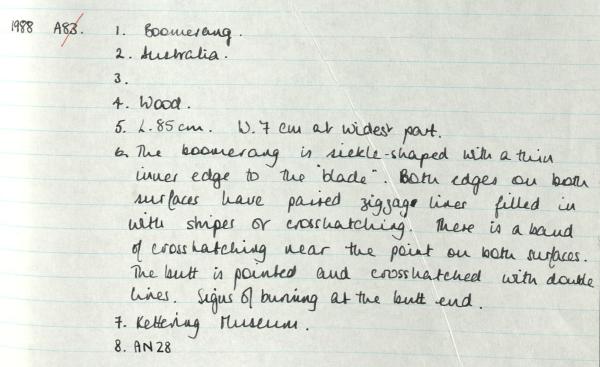 1988 A83. 1. Boomerang.
2. Australia.
3.
4. Wood.
5. L. 85cm. W. 7 cm at widest part.
6. The boomerang is sickle-shaped with a thin
inner edge to the "blade". Both edges on both
surfaces have paired zigzag lines filled in
with stripes or crosshatching. There is a band
of crosshatching near the point on both surfaces.
The butt is pointed and crosshatched with double
lines. Signs of burning at the butt end.
7. Kettering Museum.
8. AN28